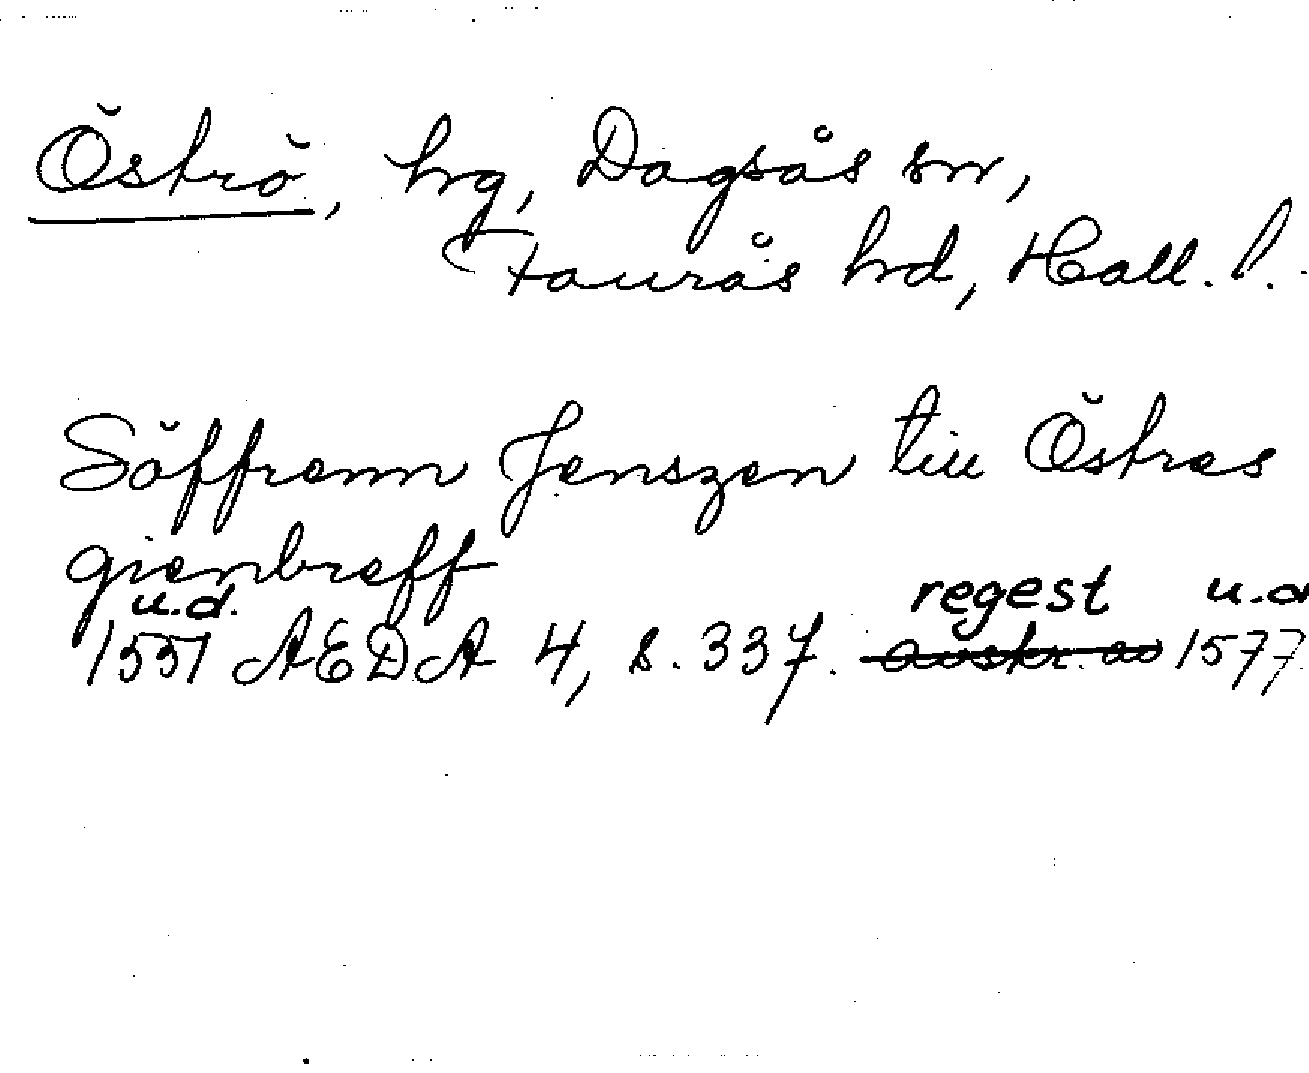 Öströ, hrg, Dagsås sn,
Faurås hd, Hall. l.
Söffrenn Jenszen till Östres
gienbreff
u.d. regest u.d
1551 AEDA 4, s. 337. avskr. av 1577